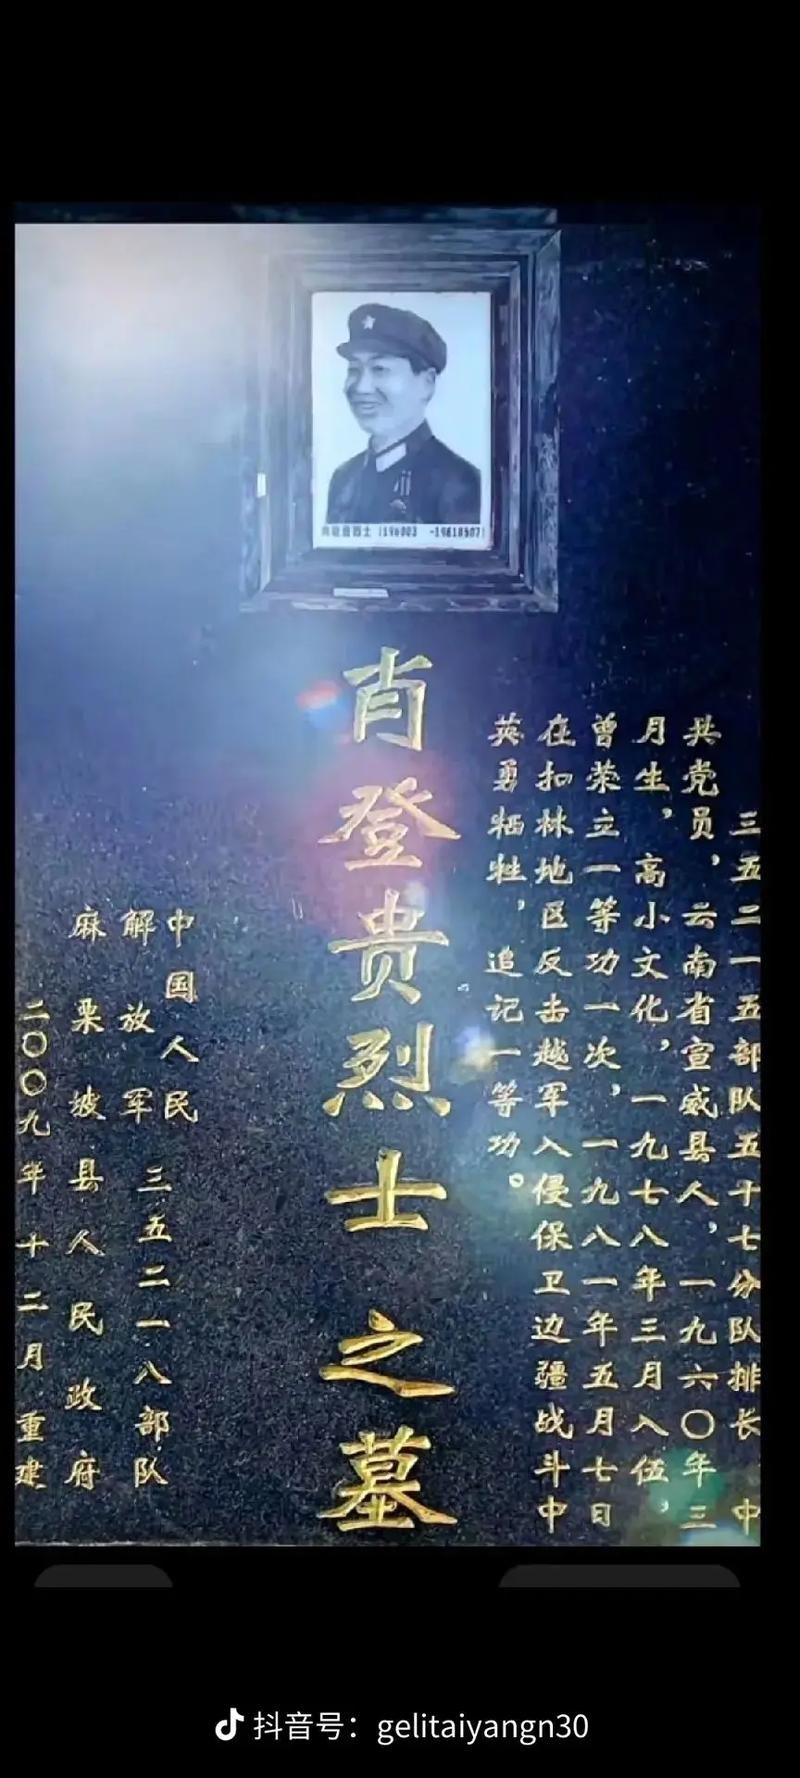 烈士 (196003
三五二一五部队五十七分队排长 中
共党员，云南省宣威县人，一九六〇年三
月生，高小文化，一九七八年三月入伍，
曾荣立一等功一次，一九八一年五月七日
在扣林地区反击越军入侵保卫边疆战斗中
英勇牺牲，追记一等功。
肖登贵烈士之墓
中国人民
解放军
三五二一八部队
麻栗坡县人民政府
二〇〇九年十二月重建
抖音号：gelitaiyangn30